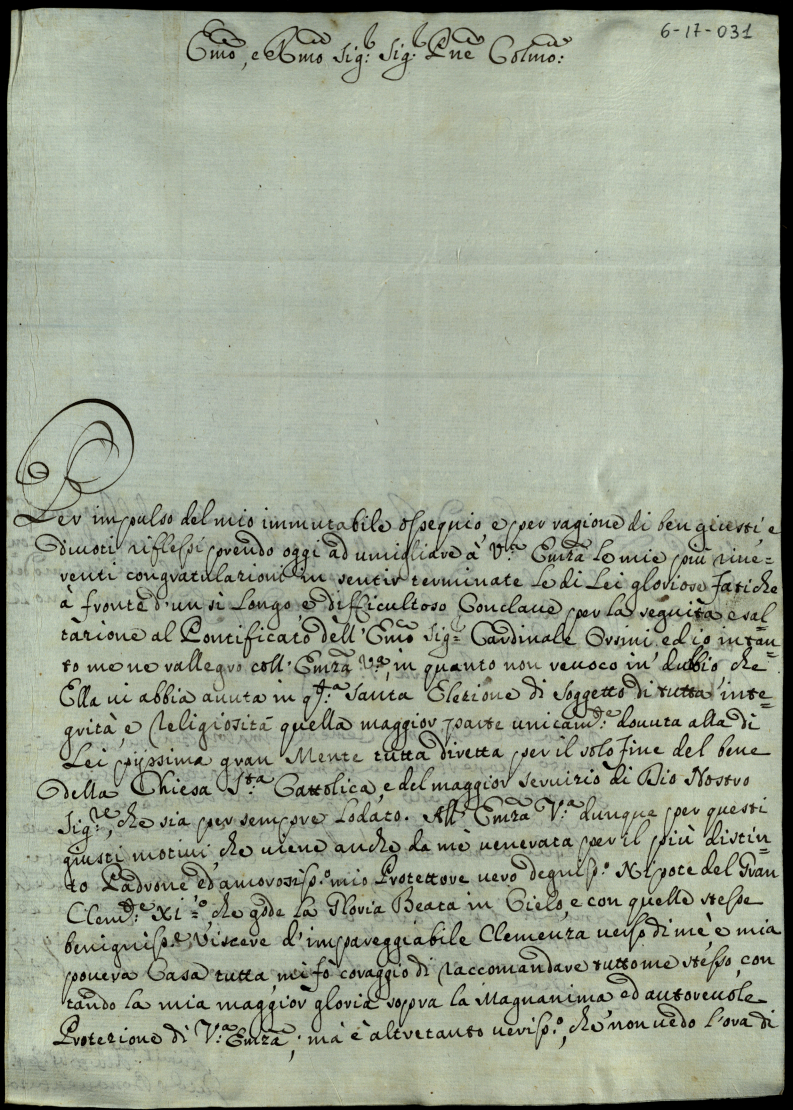 6-17-031
Emo, e Rmo Sig: Sig: Pne Colmo:
Per impulso del mio immutabile ossequio e per ragione di ben giusti e
divoti riflessi prendo oggi ad umigliare à V:a Emza le mie più rive=
renti congratulazioni in sentir terminate le di Lei gloriose fatiche
à fronte d'un sì Longo, e difficultoso Conclave per la seguita esal
tazione al Pontificato dell'Emo Sig:e Cardinale Orsini, ed io intan=
to me ne rallegro coll'Emza V:a, in quanto non revoco in dubbio che
Ella vi abbia avuta in q.ta Santa Elezione di Soggetto di tutta inte=
grità, e Religiosità quella maggior parte unicam.te dovuta alla di
Lei pijssima gran Mente tutta diretta per il solo fine del bene
della Chiesa S:ta Cattolica, e del maggior servizio di Dio Nostro
Sig:re, che sia per sempre Lodato. All'Emza V:a dunque per questi
giusti motivi, che viene anche da mè venerata per il più distin=
to Padrone ed amorosiss:o mio Protettore vero degniss:o Nipote del Gran
Clem:te XI:o che gode la Gloria Beata in Cielo, e con quelle stesse
benigniss:e Viscere d'impareggiabile Clemenza verso di mè, e mia
povera Casa tutta, mi fò coraggio di raccomandare tutto me stesso, con
tando la mia maggior gloria sopra la Magnanima ed autorevole
Protezione di V:a Emza; mà è altretanto veriss:o, che non vedo l'ora di